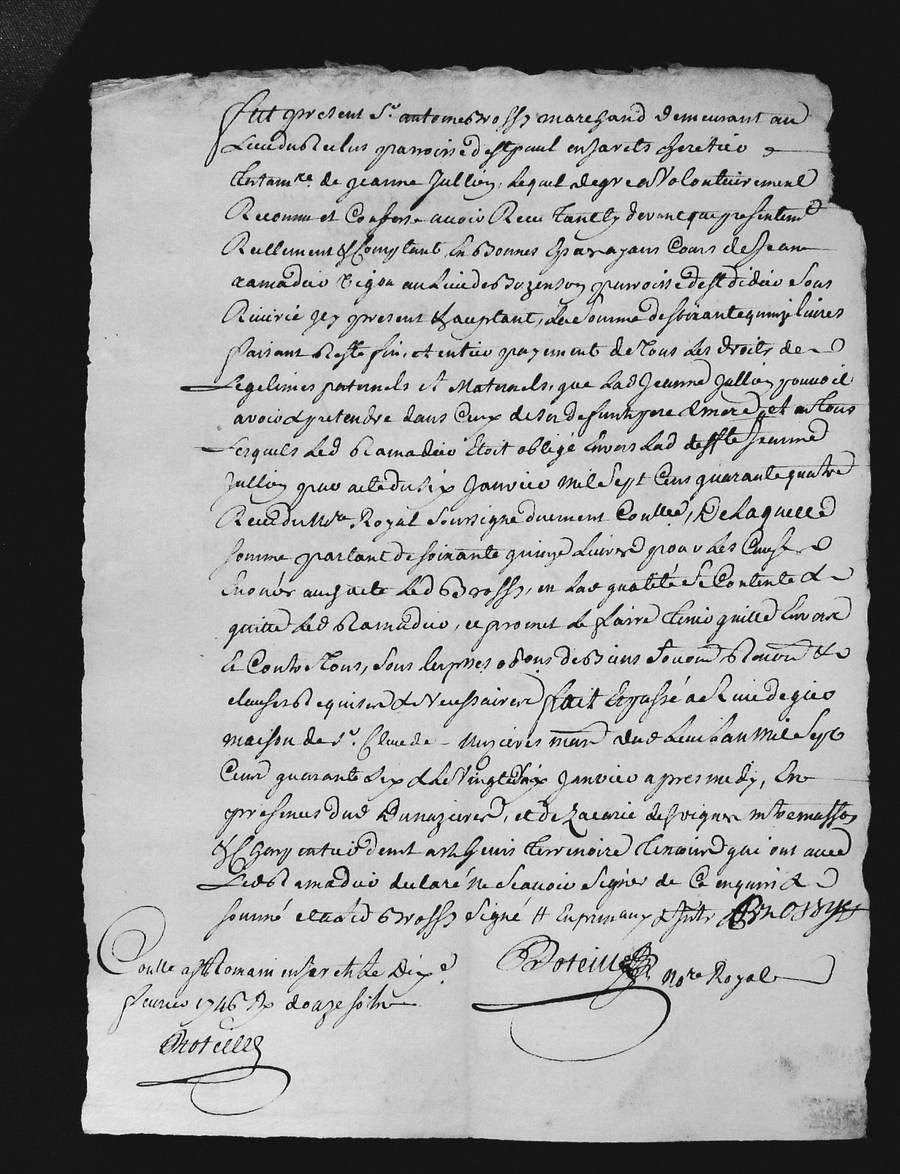 fut present Sr. antoine Brossy marchand demeurant au
Lieu du Reclus parroisse de st paul en jarets heretier
testam.re de jeanne Jullien, Lequel de gre a Volontairement
Reconnu et Confessé avoir Receu tant cy devant que presentem.t
Reellement & Comptant, En Bonnes Especes ayans Cours de Jean
ramadier au Lieu de parroisse de st didier Sous
Riverié jcy present & acceptant, La Somme de Soixante quinze livres
faisant Reste fin, et entier payement de tous Les droits de
Legitimes paternels et Maternels, que Lad Jeanne Jullien pouvoit
avoir & pretendre dans Ceux de Son defunt pere & mere, et a tous
Lesquels Led Ramadier Etoit obligé Envers Lad deffte Jeanne
Jullien par acte du six Janvier mil Sept Cens quarante quatre
Receu du No.re Royal Soussigne duement Contllé, De Laquelle
somme partant de Soixante quinze Livres pour Les Causes
Enoncés aud acte Led Brossy, en Lad qualité Se Contente &
quitte Led Ramadier, et promet Le faire tenir quitte Envers
& Contre tous, Sous Les peines obons de Biens Renon &
clauses Requises & Necessaires fait Et passé a Rivedegier
maison de Sr. Claude Muzieres marc dud Lieu L'an mil Sept
Cens quarante Six & Le Vingt Six Janvier apres midy, En
presences dud Muzieres, et de Zacarie Desvignes
& Charpentier
Led Ramadier declaré Ne Scavoir Signer de Ce enquis &
sommé et a Led Brossy Signé BROSSY
Boteille No.re Royal
Contlle a st Romain en jarets Le Dix.e
fevrier 1746 Rx douze sols
Boteille